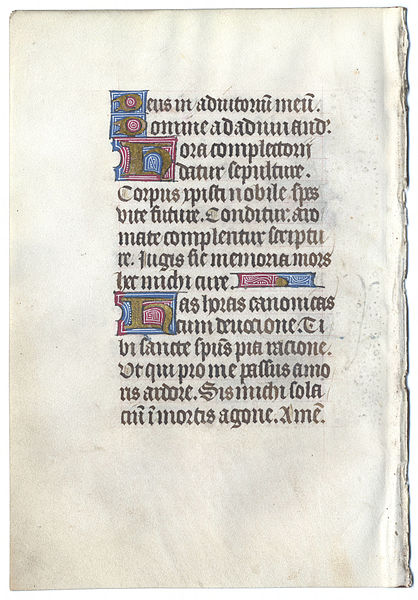 Deus in adiutoriū meū.
Domine ad adiuuand:
Hora complectorij
datur sepulture.
Corpus xp̄isti nobile sp̄s
vite future. Conditur aro
mate complentur scriptu
re. Jugis sic memoria mors
hec michi cure.
Has horas canonicas
cum deuocione. Ti
bi sancte sp̄us pia racione.
Vt qui pro me passus amo
ris ardore. Sis michi sola
ciū ī mortis agone. Amē.